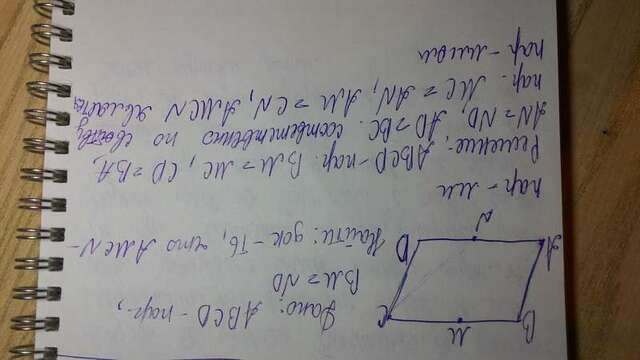 B M C
A N D
Дано: ABCD - пар.,
BM = ND
Найти: док-ть, что AMCN -
пар-мм
Решение: ABCD-пар. BM = MC, CD = BA,
AN = ND, AD = BC. соответственно по свойству
пар. MC = AN, AM = CN, AMCN является
пар-ммом